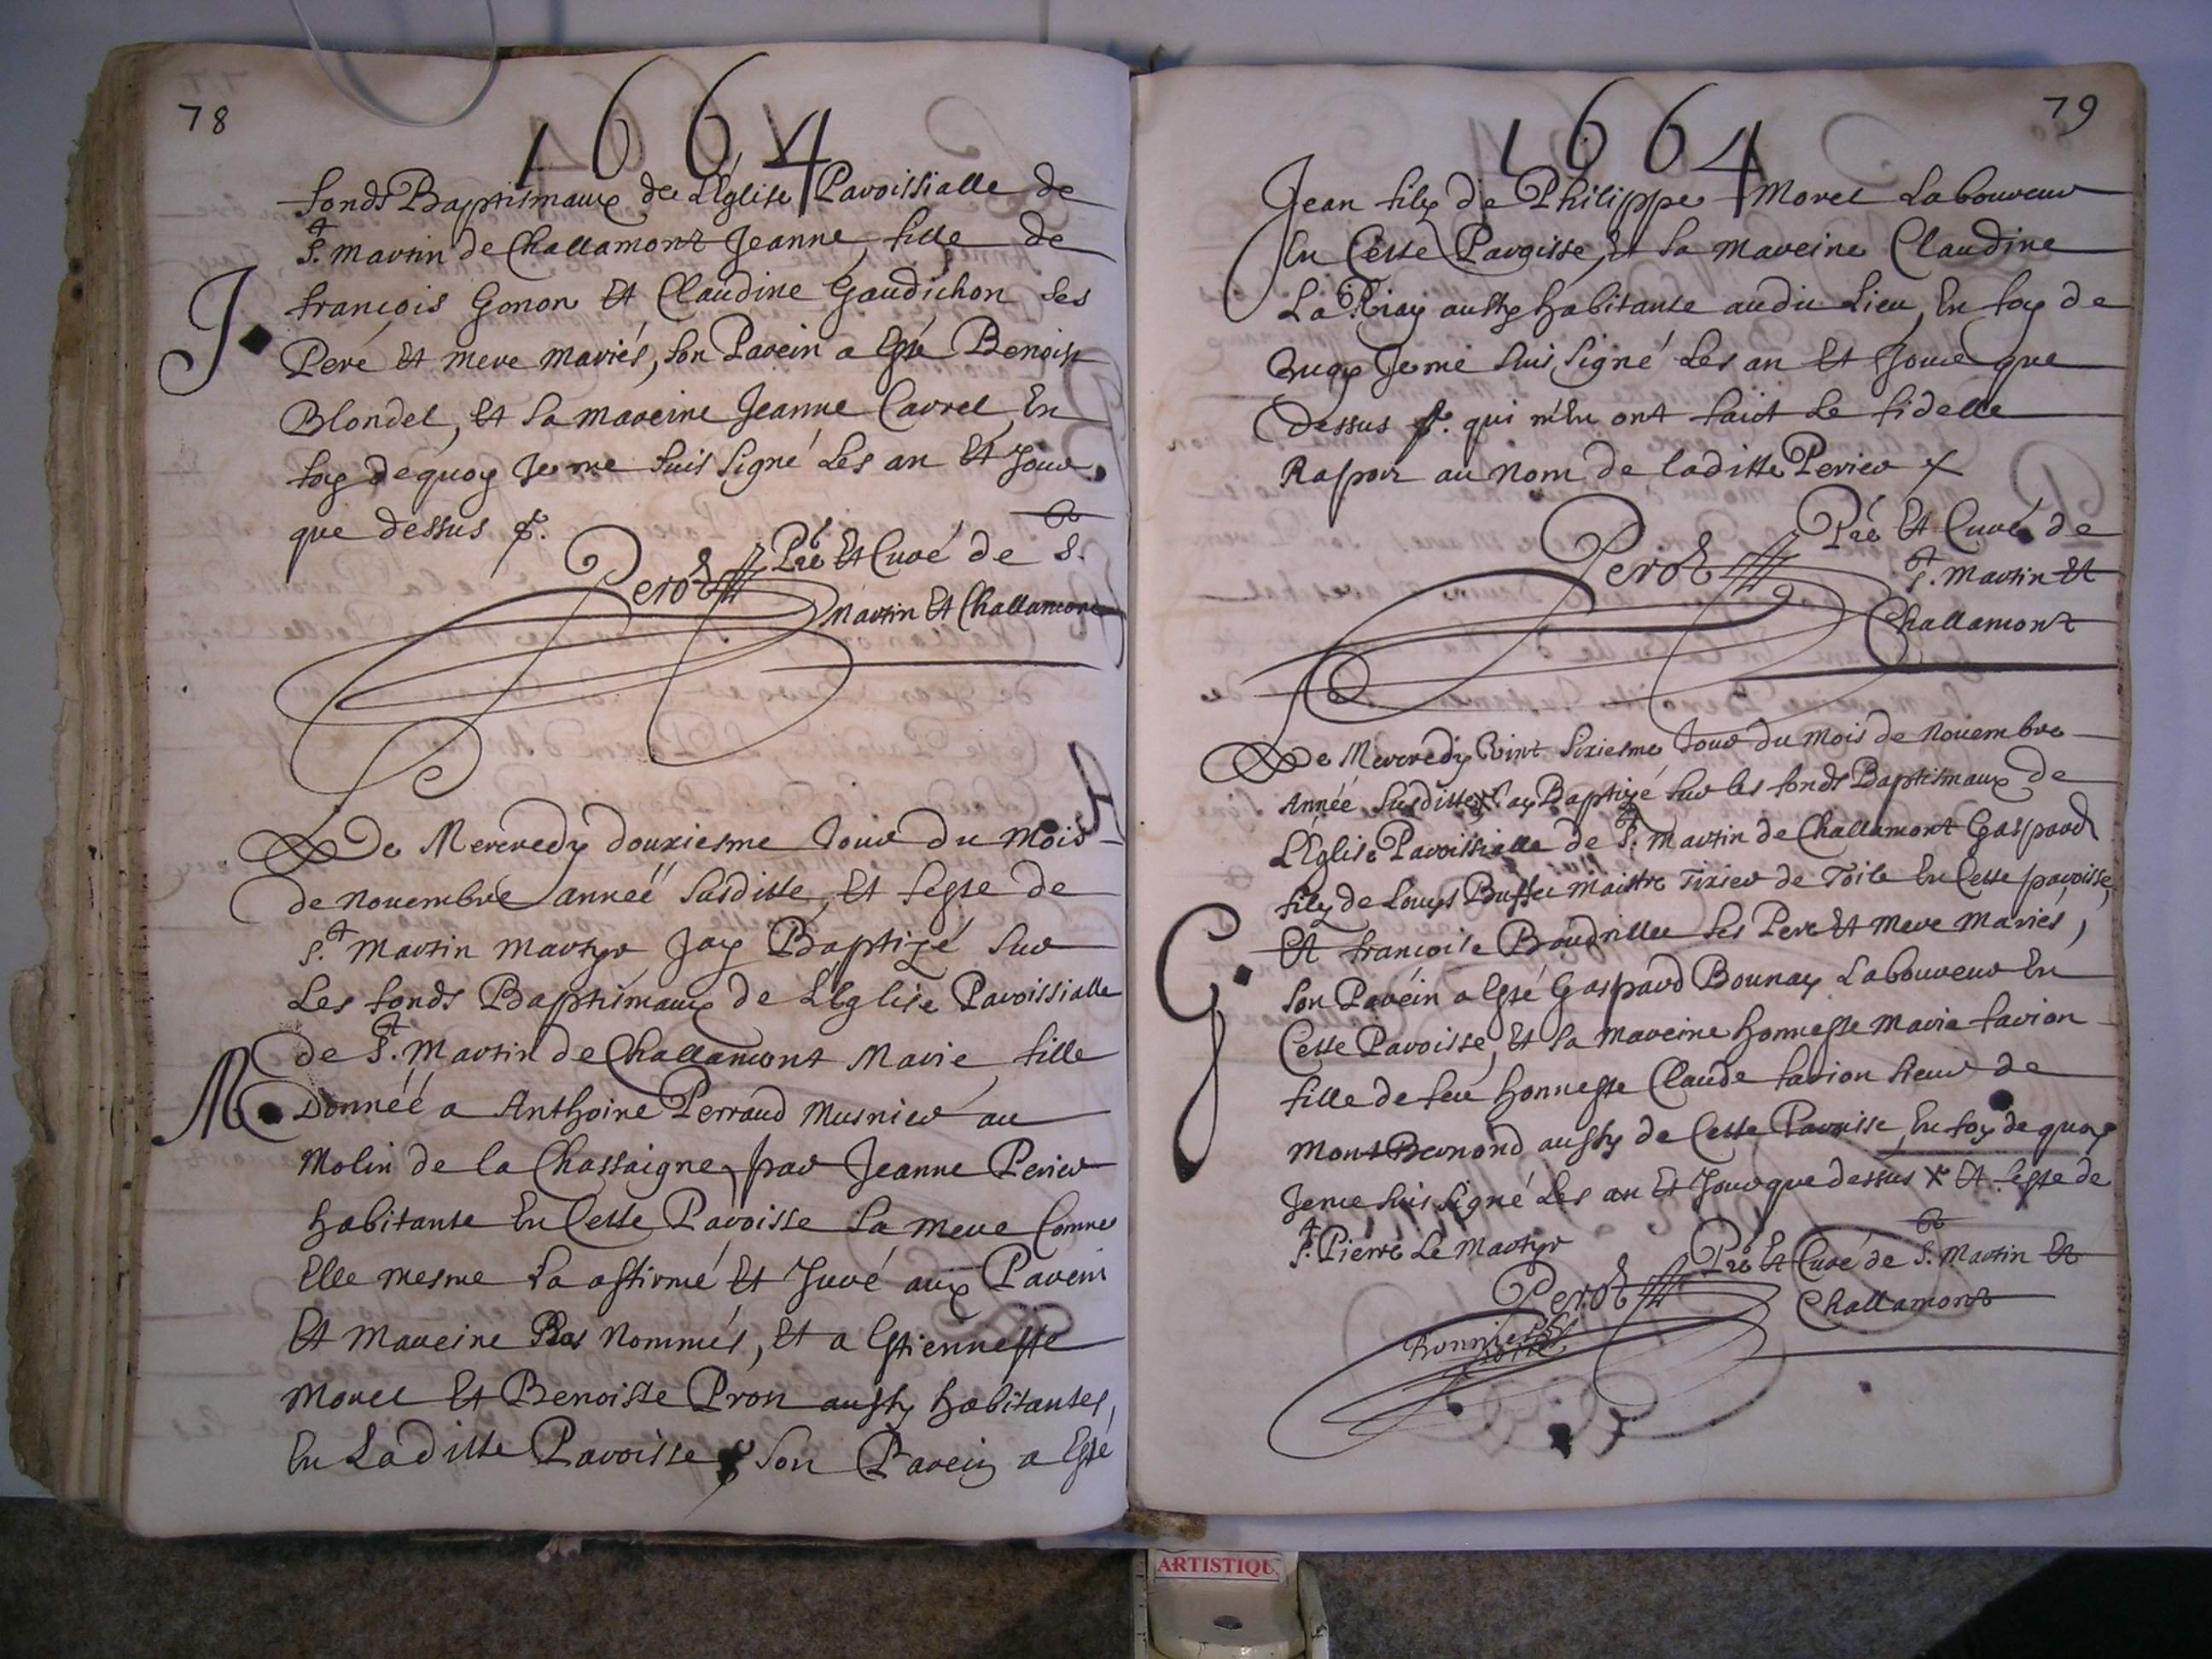 78
1664
fonds Baptismaux de L'Eglise Paroissialle de
St. Martin de Challamont Jeanne, fille de
J.
françois Gonon Et Claudine Gaudichon ses
Peré Et mere mariés, son Parein a Esté Benoist
Blondel, Et sa mareine Jeanne Carrel, En
foy de quoy Je me suis signé Les an Et Jour
que dessus
Perot Pre Et Curé de S.
Martin Et Challamont
Le Mercredy douziesme Jour du Mois
de novembre année susditte, Et feste de
St. Martin Martyr Jay Baptizé sur
Les fonds Baptismaux de L'Eglise Paroissialle
de St. Martin de Challamont Marie, fille
M.
Donnéé a Anthoine Perraud Musnier au
Molin de la Chassaigne par Jeanne Perier
habitante En Cette Paroisse sa mere Comme
Elle mesme La affirmé Et Juré aux Parein
Et Mareine Bas Nommés, Et a Estiennette
Morel Et Benoiste Pron aussy habitantes,
En Laditte Paroisse, son Parein a Esté
79
1664
Jean filz de Philippe Morel Laboureur
En Cette Paroisse, Et sa mareine Claudine
La aussy habitante audit Lieu, En foy de
quoy Je me suis signé Les an Et Jour que
dessus qui m'En ont faict Le fidelle
Raport au Nom de laditte Perier
Perot Pre Et Curé de
St. Martin Et
Challamont
Le Mercredy Vint sixiesme Jour du Mois de Novembre
Année susditte Jay Baptizé sur les fonds Baptismaux de
L'Eglise Paroissialle de St. Martin de Challamont Gaspard
filz de Louys maistre Tixier de Toile En Cette paroisse,
Et françoise ses Pere Et Mere Mariés,
G.
son Parein a Esté Gaspard Bounay Laboureur En
Cette Paroisse, Et sa Mareine honneste Marie favion
fille de feu honneste Claude favion sieur de
Mont Bernond aussy de Cette Paroisse, En foy de quoy
Jeme suis signé Les an Et Jour que dessus Et feste de
St. Pierre Le Martyr
Perot Pre Et Curé de S. Martin Et
Challamont
ARTISTIQU